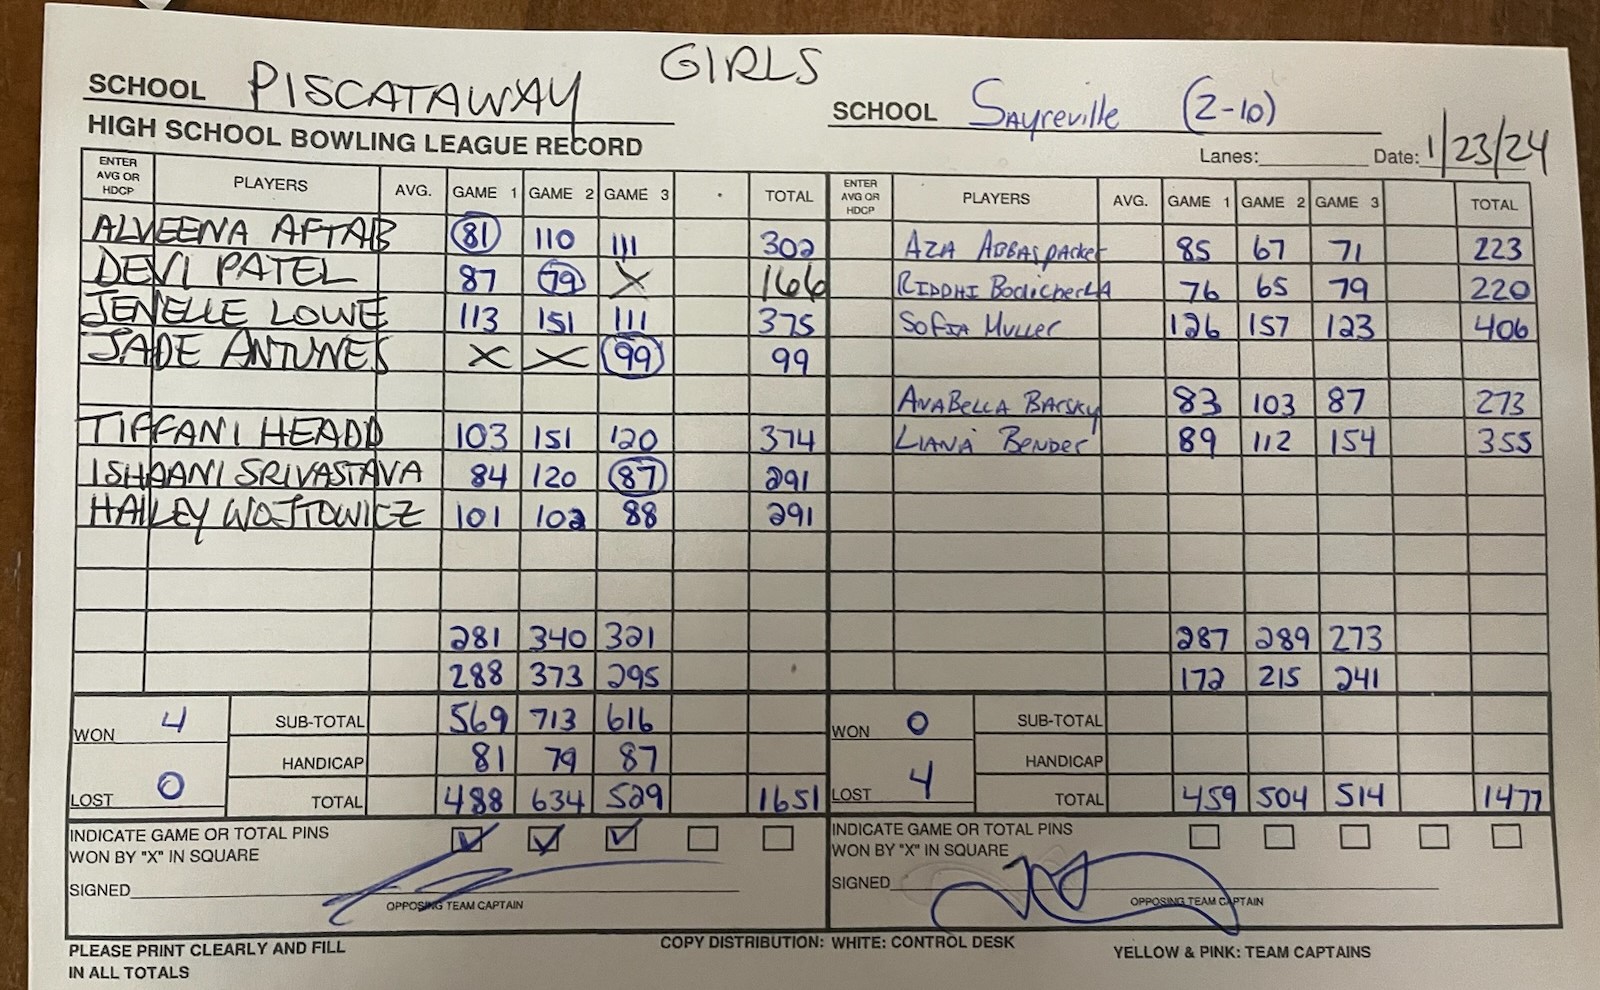 GIRLS
SCHOOL PISCATAWAY SCHOOL Sayreville (2-10)
HIGH SCHOOL BOWLING LEAGUE RECORD Lanes: Date: 1/23/24
ENTER AVG OR HDCP PLAYERS AVG. GAME 1 GAME 2 GAME 3 TOTAL ENTER AVG OR HDCP PLAYERS AVG. GAME 1 GAME 2 GAME 3 TOTAL
ALVEENA AFTAB 81 110 111 302 AZA ABBASPACKER 85 67 71 223
DEVI PATEL 87 79 X 166 RIDDHI 76 65 79 220
JENELLE LOWE 113 151 111 375 SOFIA MULLER 126 157 123 406
JADE ANTUNES X X 99 99
ANABELLA BARSKY 83 103 87 273
TIFFANI HEADD 103 151 120 374 LIANA BENDER 89 112 154 355
ISHAANI SRIVASTAVA 84 120 87 291
HAILEY WOJTOWICZ 101 102 88 291
281 340 321 287 289 273
288 373 295 172 215 241
WON 4 SUB-TOTAL 569 713 616 WON 0 SUB-TOTAL
HANDICAP 81 79 87 HANDICAP
LOST 0 TOTAL 488 634 529 1651 LOST 4 TOTAL 459 504 514 1477
INDICATE GAME OR TOTAL PINS INDICATE GAME OR TOTAL PINS
WON BY "X" IN SQUARE WON BY "X" IN SQUARE
SIGNED SIGNED
OPPOSING TEAM CAPTAIN OPPOSING TEAM CAPTAIN
PLEASE PRINT CLEARLY AND FILL COPY DISTRIBUTION: WHITE: CONTROL DESK YELLOW & PINK: TEAM CAPTAINS
IN ALL TOTALS